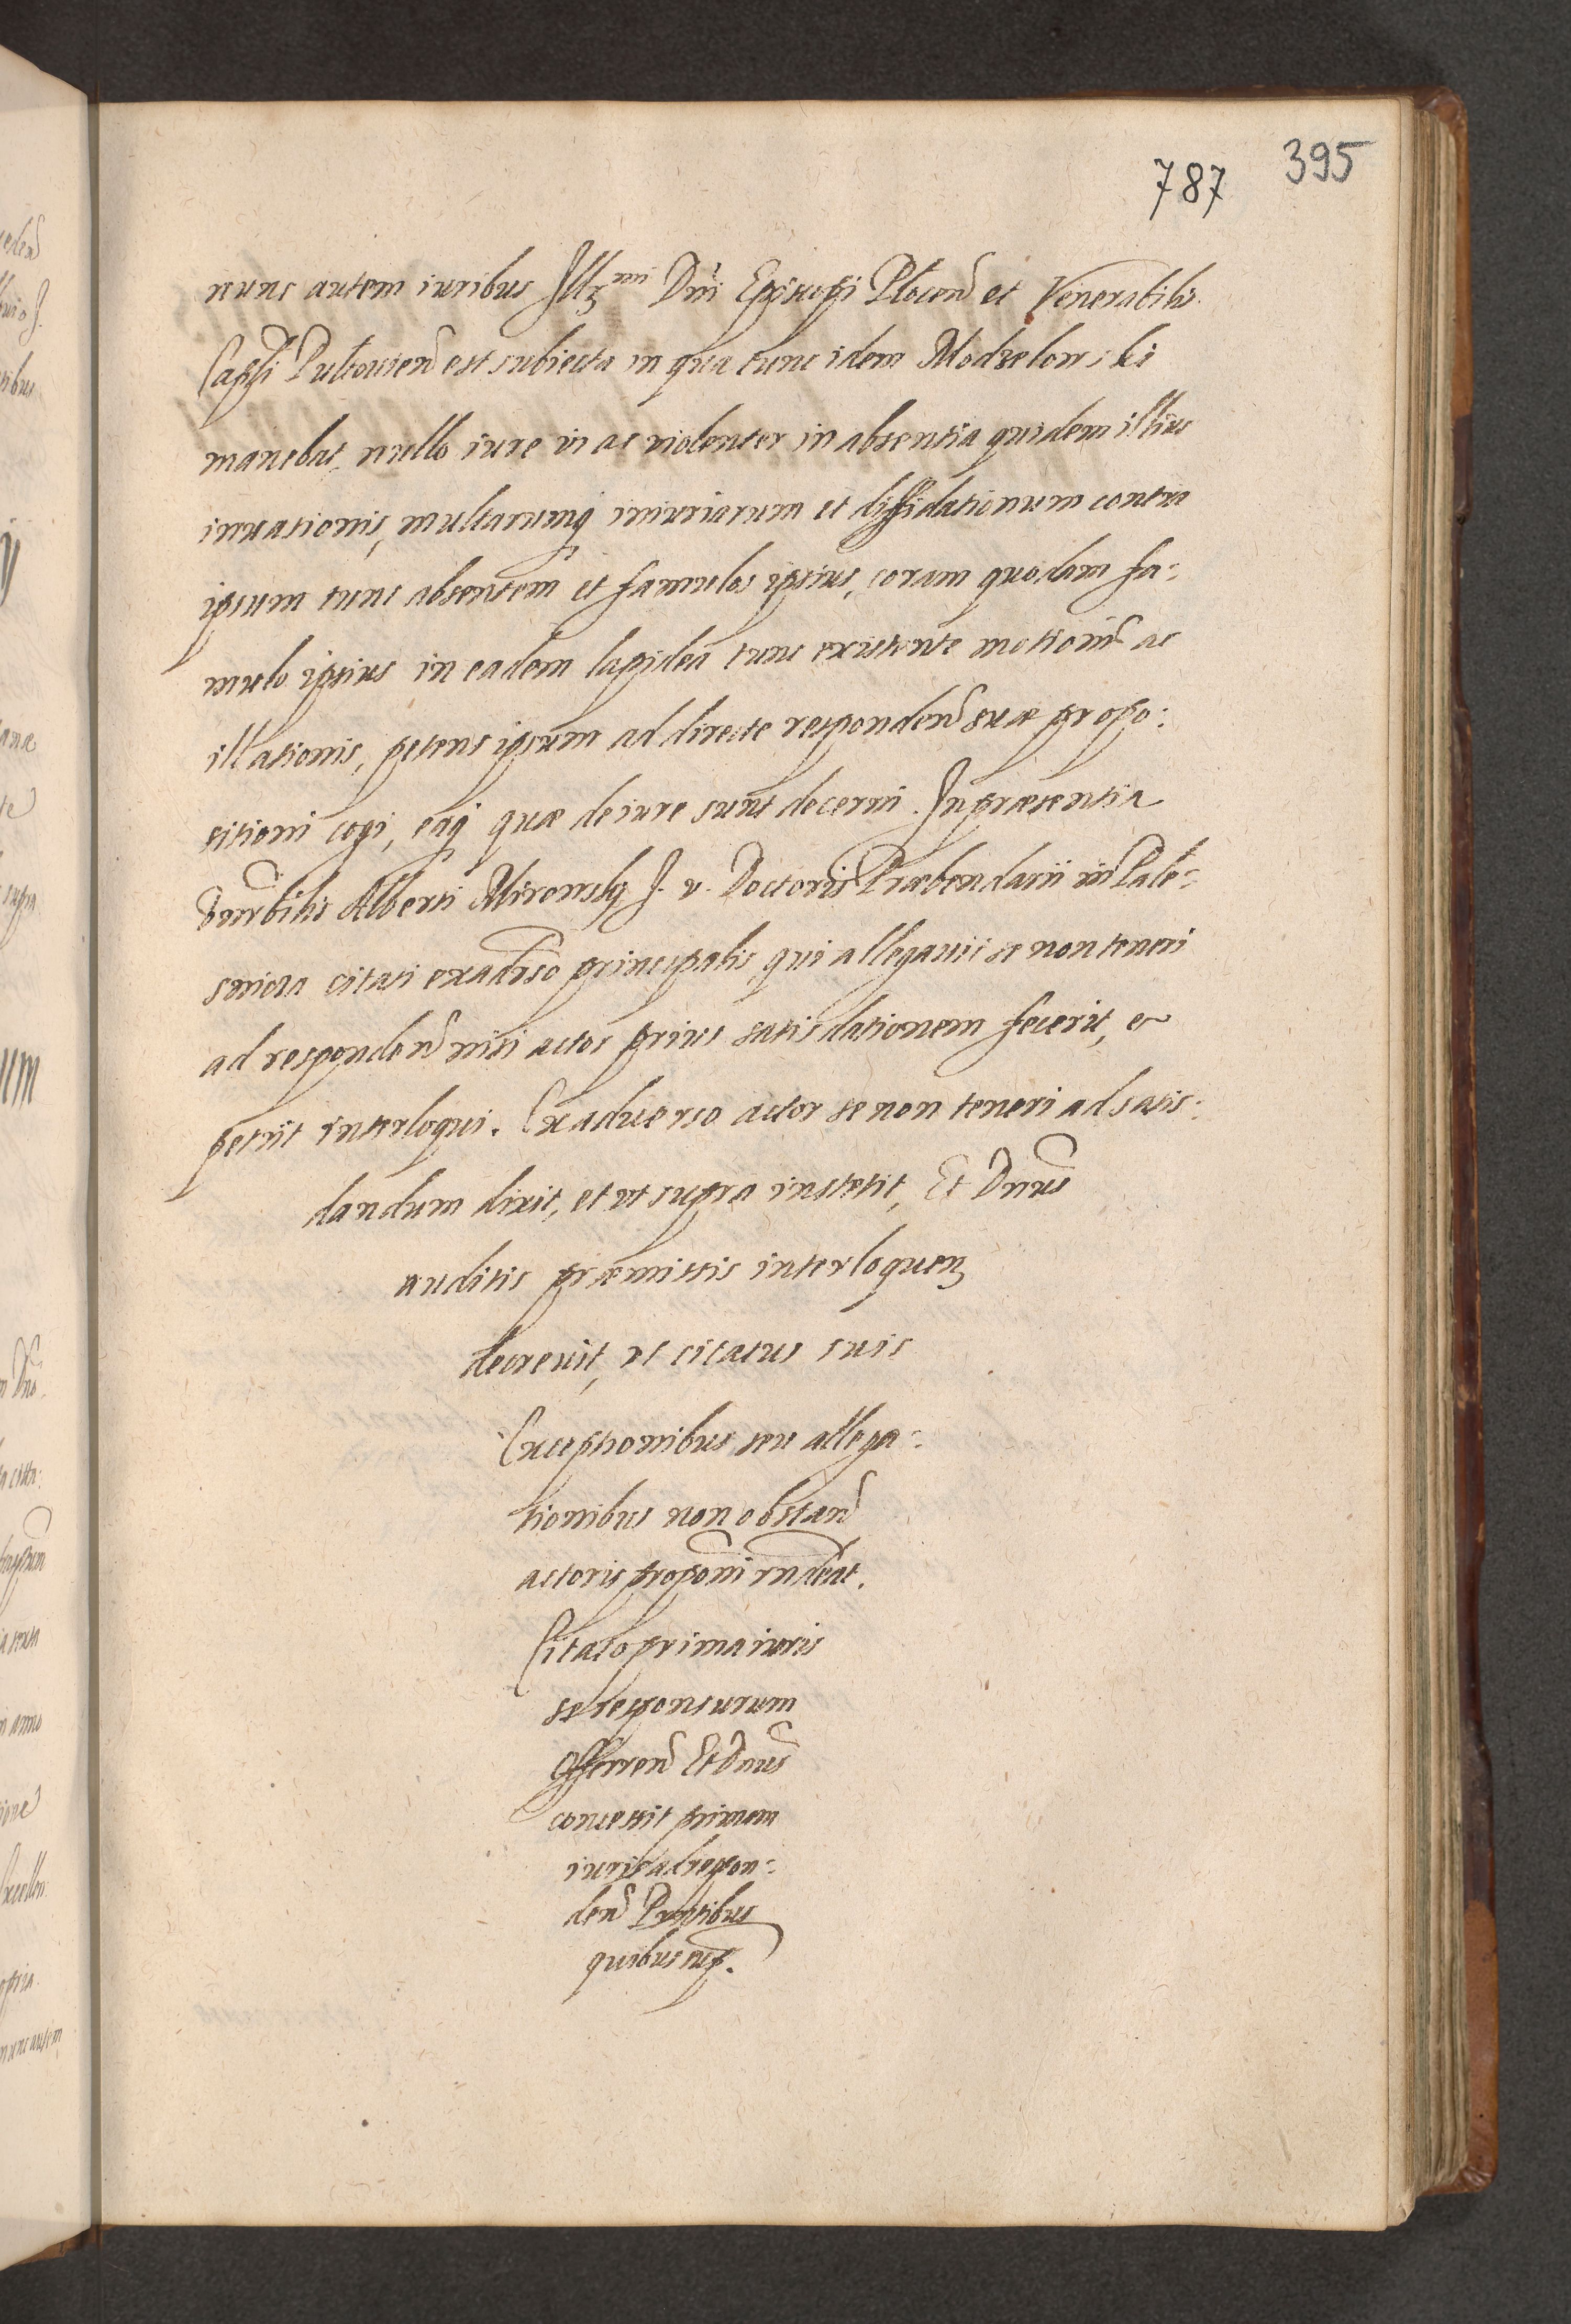 395
787
nunc autem iuribus Illmi Dni Episcopi Plocen et Venerabilis
Capli Pultouien est subiecta in qua tunc idem Modzelowski
manebat, nullo iure vi ac violenter in absentia quidem illius
inuasionis, multarumq iniuriarum et diffidationum contra
ipsum tunc absentem et famulos ipsius, coram quodam fa:
mulo ipsius in eadem lapidea tunc existente motionis ac
illationis, petens ipsum ad directe respondend suæ propo:
sitioni cogi, eaq quæ de iure sunt decerni. In præsentia
Alberti Mironsky J. v. Doctoris Præbendarii in Pale:
citati ex aduerso principalis, qui allegauit se non teneri
ad respondend nisi actor prius satisdationem fecerit, et
petiit interloqui. Ex aduerso actor se non teneri ad satis:
dandum dixit, et ut supra institit, Et Dnus
auditis præmissis interloquen
decreuit, ut citatus suis
Exceptionibus seu allega:
tionibus non obstan
actoris proponi rndeat.
Citato prima iuris
se responsurum
offerren Et Dnus
concessit primam
iuris ad respon:
den Pntibus
quibus sup.